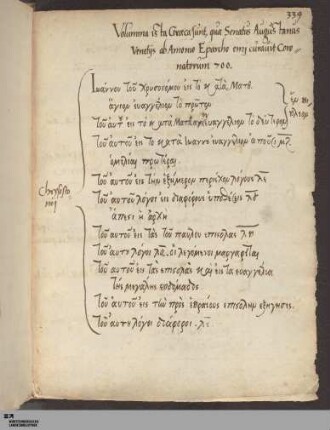 339
Volumina ista Graeca sunt, quae Senatus Augustanus
Venetijs ab Antonio Eparcho emi curavit Coro-
natorum 700.
Ἰωάννου τοῦ Χρυσοστόμου εἰς τὸ κατὰ Ματθ.
ἅγιον εὐαγγέλιον τὸ πρῶτον
Τοῦ αὐτ εἰς τὸ κατὰ Ματθαῖον εὐαγγέλιον τὸ δεύτερον
Τοῦ αὐτοῦ εἰς τὸ κατὰ Ἰωάννην εὐαγγέλιον
ὁμιλίαι
Τοῦ αὐτοῦ εἰς τὴν ἑξαήμερον περιέχει λόγους λ
Chrysosto-
mus
Τοῦ αὐτοῦ λόγοι εἰς διαφόρους ὑποθέσεις
ἄπεστι ἡ ἀρχή
Τοῦ αὐτοῦ εἰς τὰς τοῦ παύλου ἐπιστολάς
Τοῦ αὐτοῦ λόγοι οἱ λεγόμενοι μαργαρῖται
Τοῦ αὐτοῦ εἰς τὰς ἐπιστολὰς καὶ εἰς τὰ εὐαγγέλια
τῆς μεγάλης ἑβδομάδος
Τοῦ αὐτοῦ εἰς τὴν πρὸς ἑβραίους ἐπιστολὴν ἐξήγησις.
Τοῦ αὐτοῦ λόγοι διάφοροι